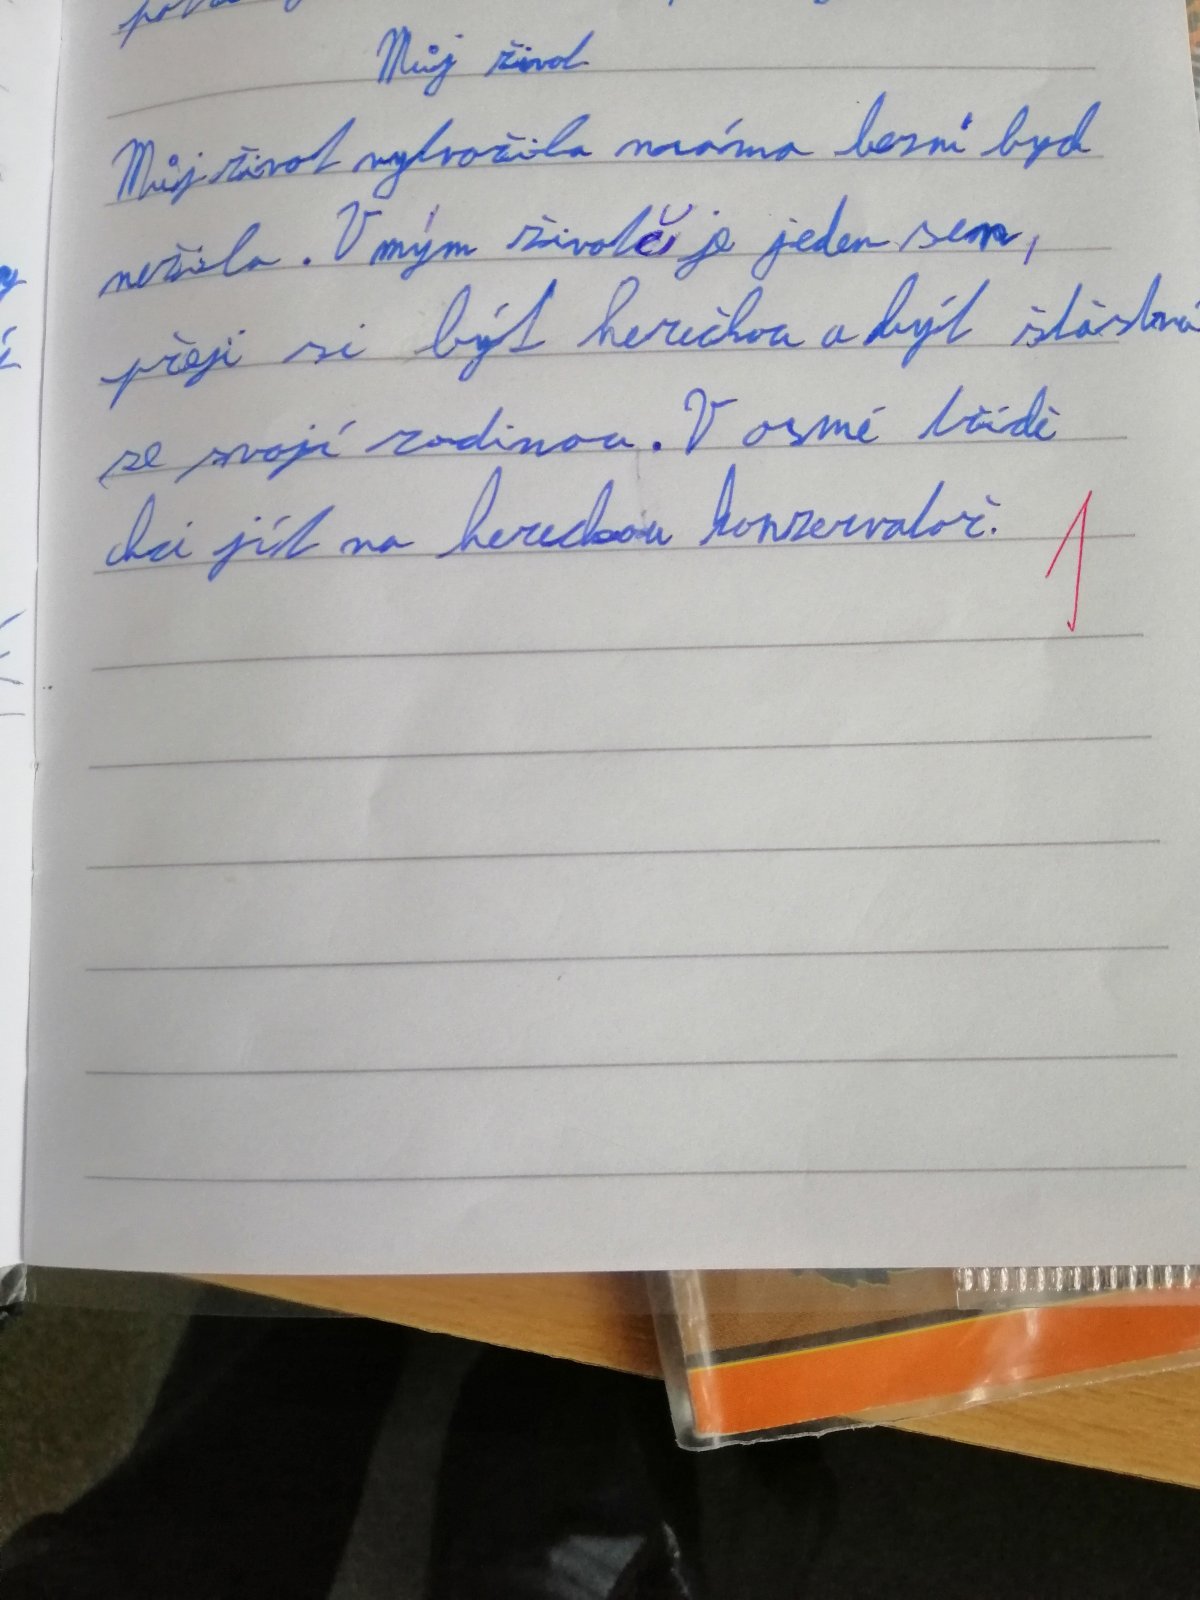 Můj život
Můj život vytvořila máma bezní byd
nežila. V mým životě je jeden sen,
přeji si být herečkou a být šťástná
se svojí rodinou. V osmé třídě
chci jít na hereckou konzervatoř.
1